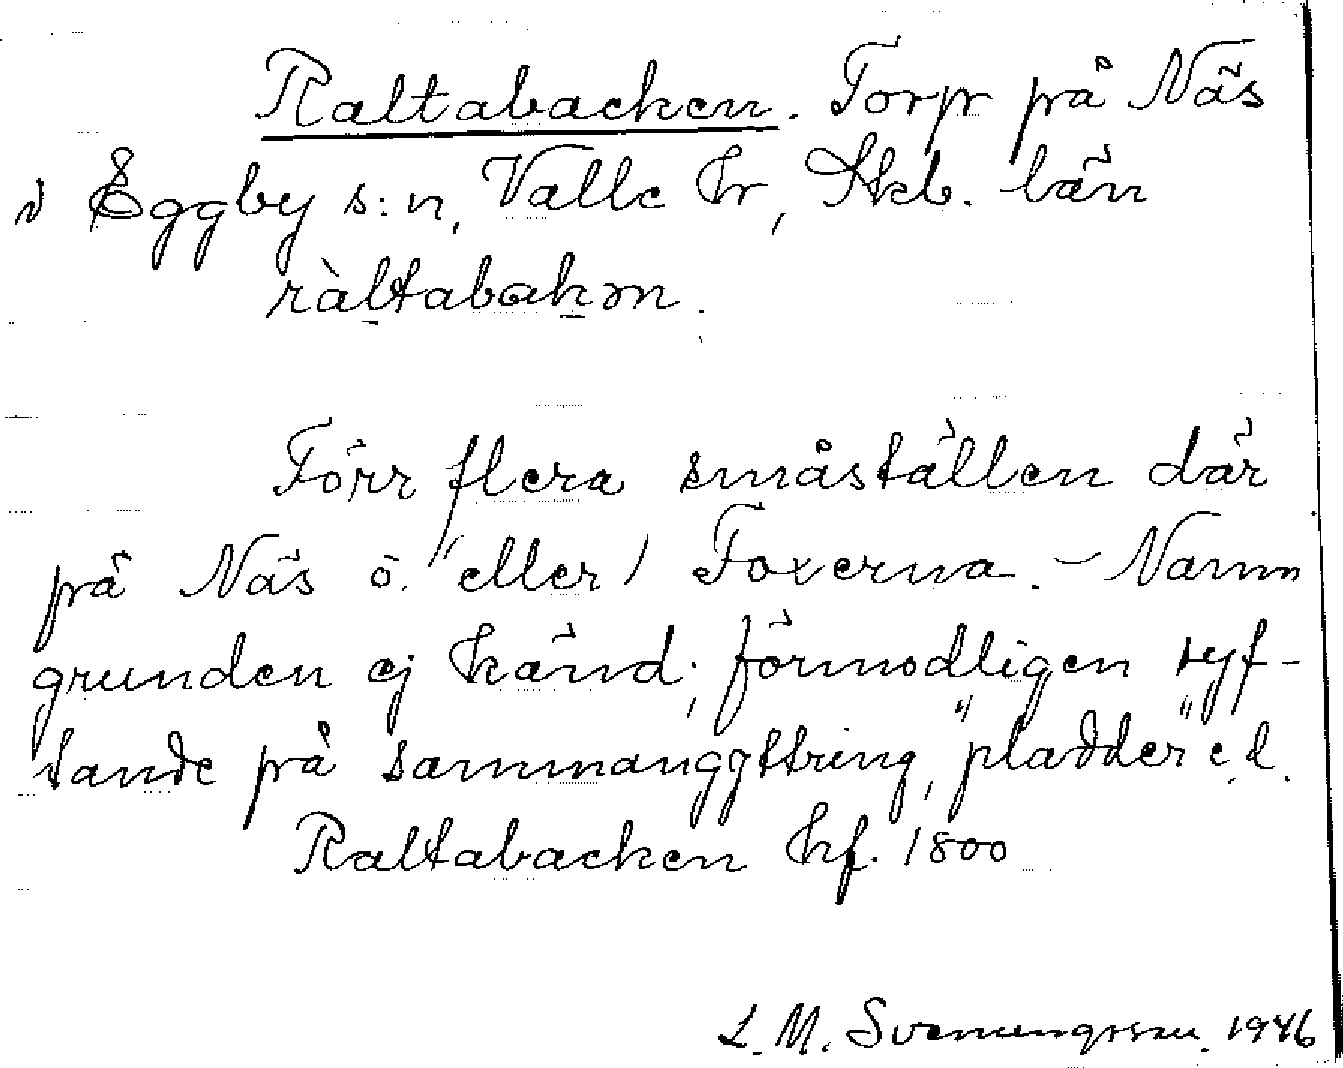 Raltabacken. Torp på Näs
i Eggby s:n, Valle hr, Skb. län
ràltabakən.
Förr flera småställen där
på Näs ö. (eller) Foxerna. – Namn
grunden ej känd; förmodligen syf-
tande på sammangyttring, "pladder" e.d.
Raltabacken hf. 1800
L. M. Svenungsson. 1946